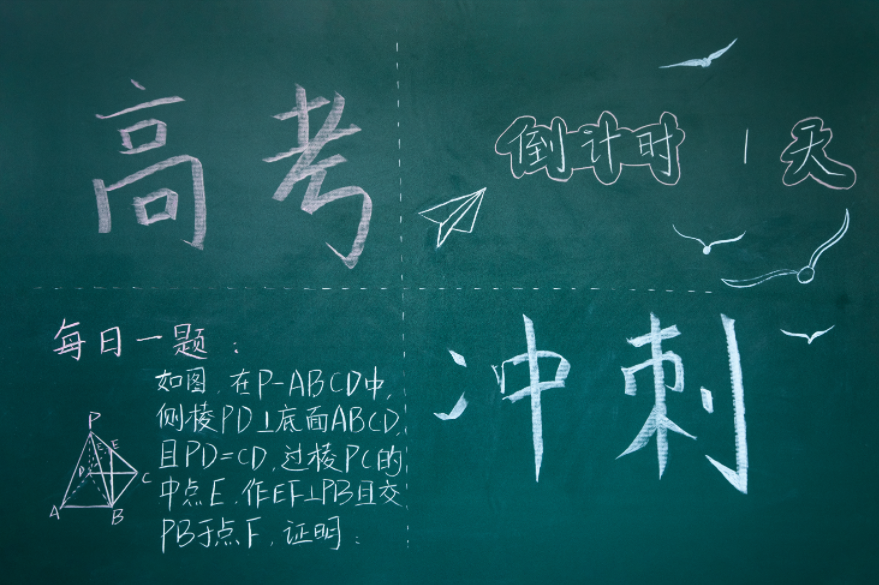 高考
倒计时 1 天
冲刺
每日一题：
如图，在P-ABCD中，
侧棱PD⊥底面ABCD，
且PD=CD，过棱PC的
中点E，作EF⊥PB且交
PB于点F，证明：
P
E
D
C
A
B